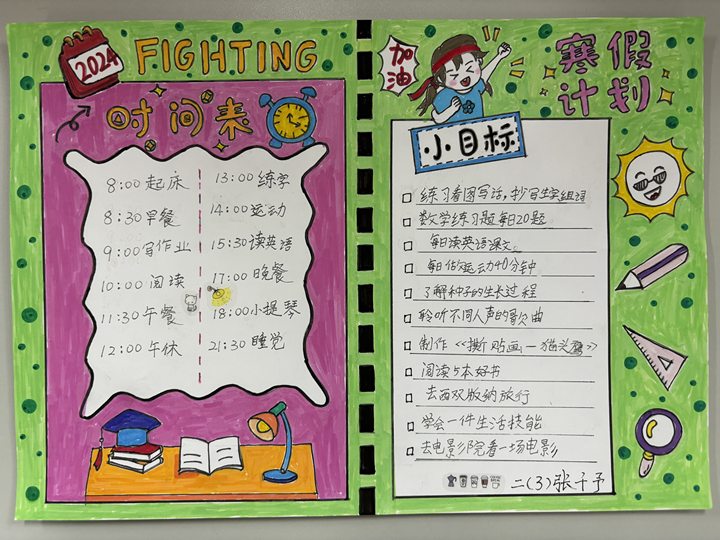 2024
FIGHTING
时间表
8:00 起床
8:30 早餐
9:00 写作业
10:00 阅读
11:30 午餐
12:00 午休
13:00 练字
14:00 运动
15:30 读英语
17:00 晚餐
18:00 小提琴
21:30 睡觉
加油
寒假
计划
小目标
练习看图写话,抄写生字组词
数学练习题每日20题
每日读英语课文。
每日运动40分钟
了解种子的生长过程
聆听不同人声的歌曲
制作《撕贴画—猫头鹰》
阅读5本好书
去西双版纳旅行
学会一件生活技能
去电影院看一场电影
二(3)张千予